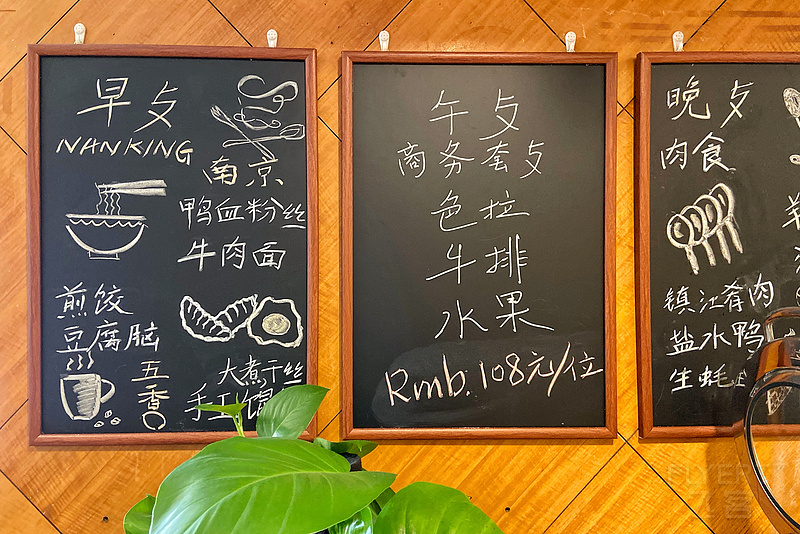 早攵
NANKING
南京
鸭血粉丝
牛肉面
煎饺
豆腐脑
五香
大煮干丝
手工馄
午攵
商务套攵
色拉
牛排
水果
Rmb.108元/位
晚攵
肉食
镇江肴肉
盐水鸭
生蚝